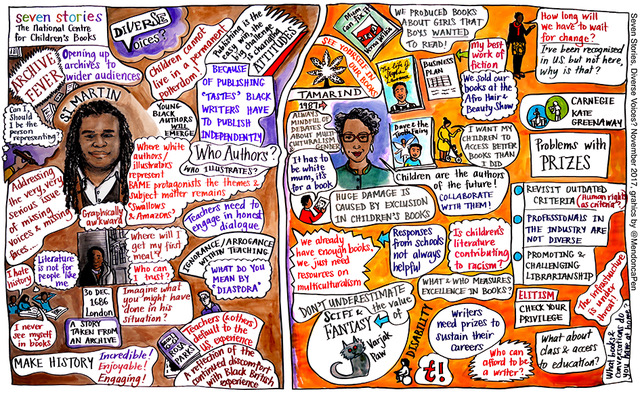 seven stories
The National Centre
for Children's Books
DIVERSE
Voices?
Publishing is the
easy win,
the challenge
is changing
ATTITUDES
ARCHIVE
FEVER
Opening up
archives to
wider audiences
Children cannot
live in a permanent
potterdom!
Can I,
Should I
be the
person
representing?
S.I. MARTIN
YOUNG
BLACK
AUTHORS
WILL
EMERGE
BECAUSE
OF PUBLISHING
"TASTES" BLACK
WRITERS HAVE
TO PUBLISH
INDEPENDENTLY
Where white
authors/
illustrators
represent
BAME protagonists the themes &
subject matter remains
"Swallows
& Amazons"
Who Authors?
WHO ILLUSTRATES?
Addressing
the very, very
serious issue
of missing
voices & missing
faces....
Graphically
awkward
Teachers need to
engage in honest
dialogue
I hate
history
Literature
is not for
people like
me
Where will I
get my first
meal?
Who can I
trust?
IGNORANCE/ARROGANCE
WITHIN TEACHING
"WHAT DO YOU
MEAN BY
DIASPORA"
I never
see myself
in books
30 DEC.
1686
London
A STORY
TAKEN FROM
AN ARCHIVE
Imagine what
you might have
done in his
situation?
ROSA
PARKS
Teachers (& others)
default to the
US experience
A reflection of the
continued discomfort
with Black British
experience
MAKE HISTORY
Incredible!
Enjoyable!
Engaging!
Mum
can fix it
Verna Wilkins
WE PRODUCED BOOKS
ABOUT GIRLS THAT
BOYS WANTED
TO READ!
SEE YOURSELF IN
OUR BOOKS
my best
work of
fiction
BUSINESS
PLAN
The life of
Stephen
Lawrence
We sold our
books at the
Afro Hair &
Beauty Show
How long will
we have to wait
for change?
I've been recognised
in US but not here,
why is that?
TAMARIND
1987
ALWAYS
MINDFUL OF
DEBATES
ABOUT MULTI-
CULTURALISM,
GENDER
Dave & the
Tooth Fairy
I WANT MY
CHILDREN TO
ACCESS BETTER
BOOKS THAN
I DID
It has to
be white
mum, it's
for a book
Children are the authors
of the future!
COLLABORATE
WITH THEM!
HUGE DAMAGE IS
CAUSED BY EXCLUSION
IN CHILDREN'S BOOKS
CARNEGIE
KATE
GREENAWAY
Problems with
PRIZES
REVISIT OUTDATED
CRITERIA
(Human rights
as criteria?)
PROFESSIONALS
IN THE INDUSTRY ARE
NOT DIVERSE
PROMOTING &
CHALLENGING
LIBRARIANSHIP
We already
have enough books,
we just need
resources on
multiculturalism
Responses
from schools
not always
helpful
Is children's
literature
contributing
to racism?
WHAT & WHO MEASURES
EXCELLENCE IN BOOKS?
ELITISM
CHECK YOUR
PRIVILEGE
The infrastructure
is already
unequal!
DON'T UNDERESTIMATE
the value of
SCIFI &
FANTASY
Varjak
Paw
DISABILITY
t!
Writers
need prizes to
sustain their
careers
Who can
afford to be
a writer?
What about
class & access
to education?
What books &
conversations do
you have at home?
Seven Stories, Diverse Voices? November 2017, graphics by @MendoncaPen